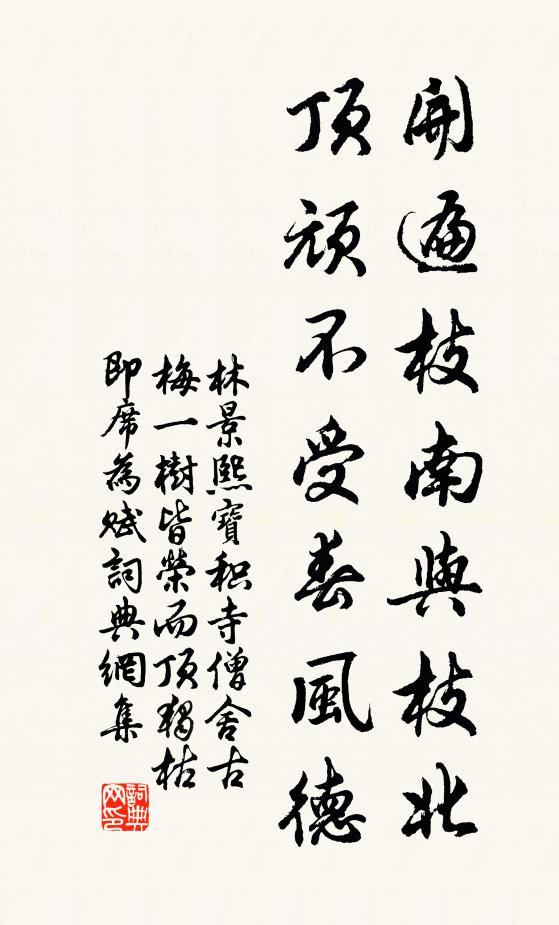 開遍枝南與枝北
頂頑不受春風德
林景熙寶积寺僧舍古
梅一樹皆榮而頂獨枯
即席為賦詞典網集
詞典网印